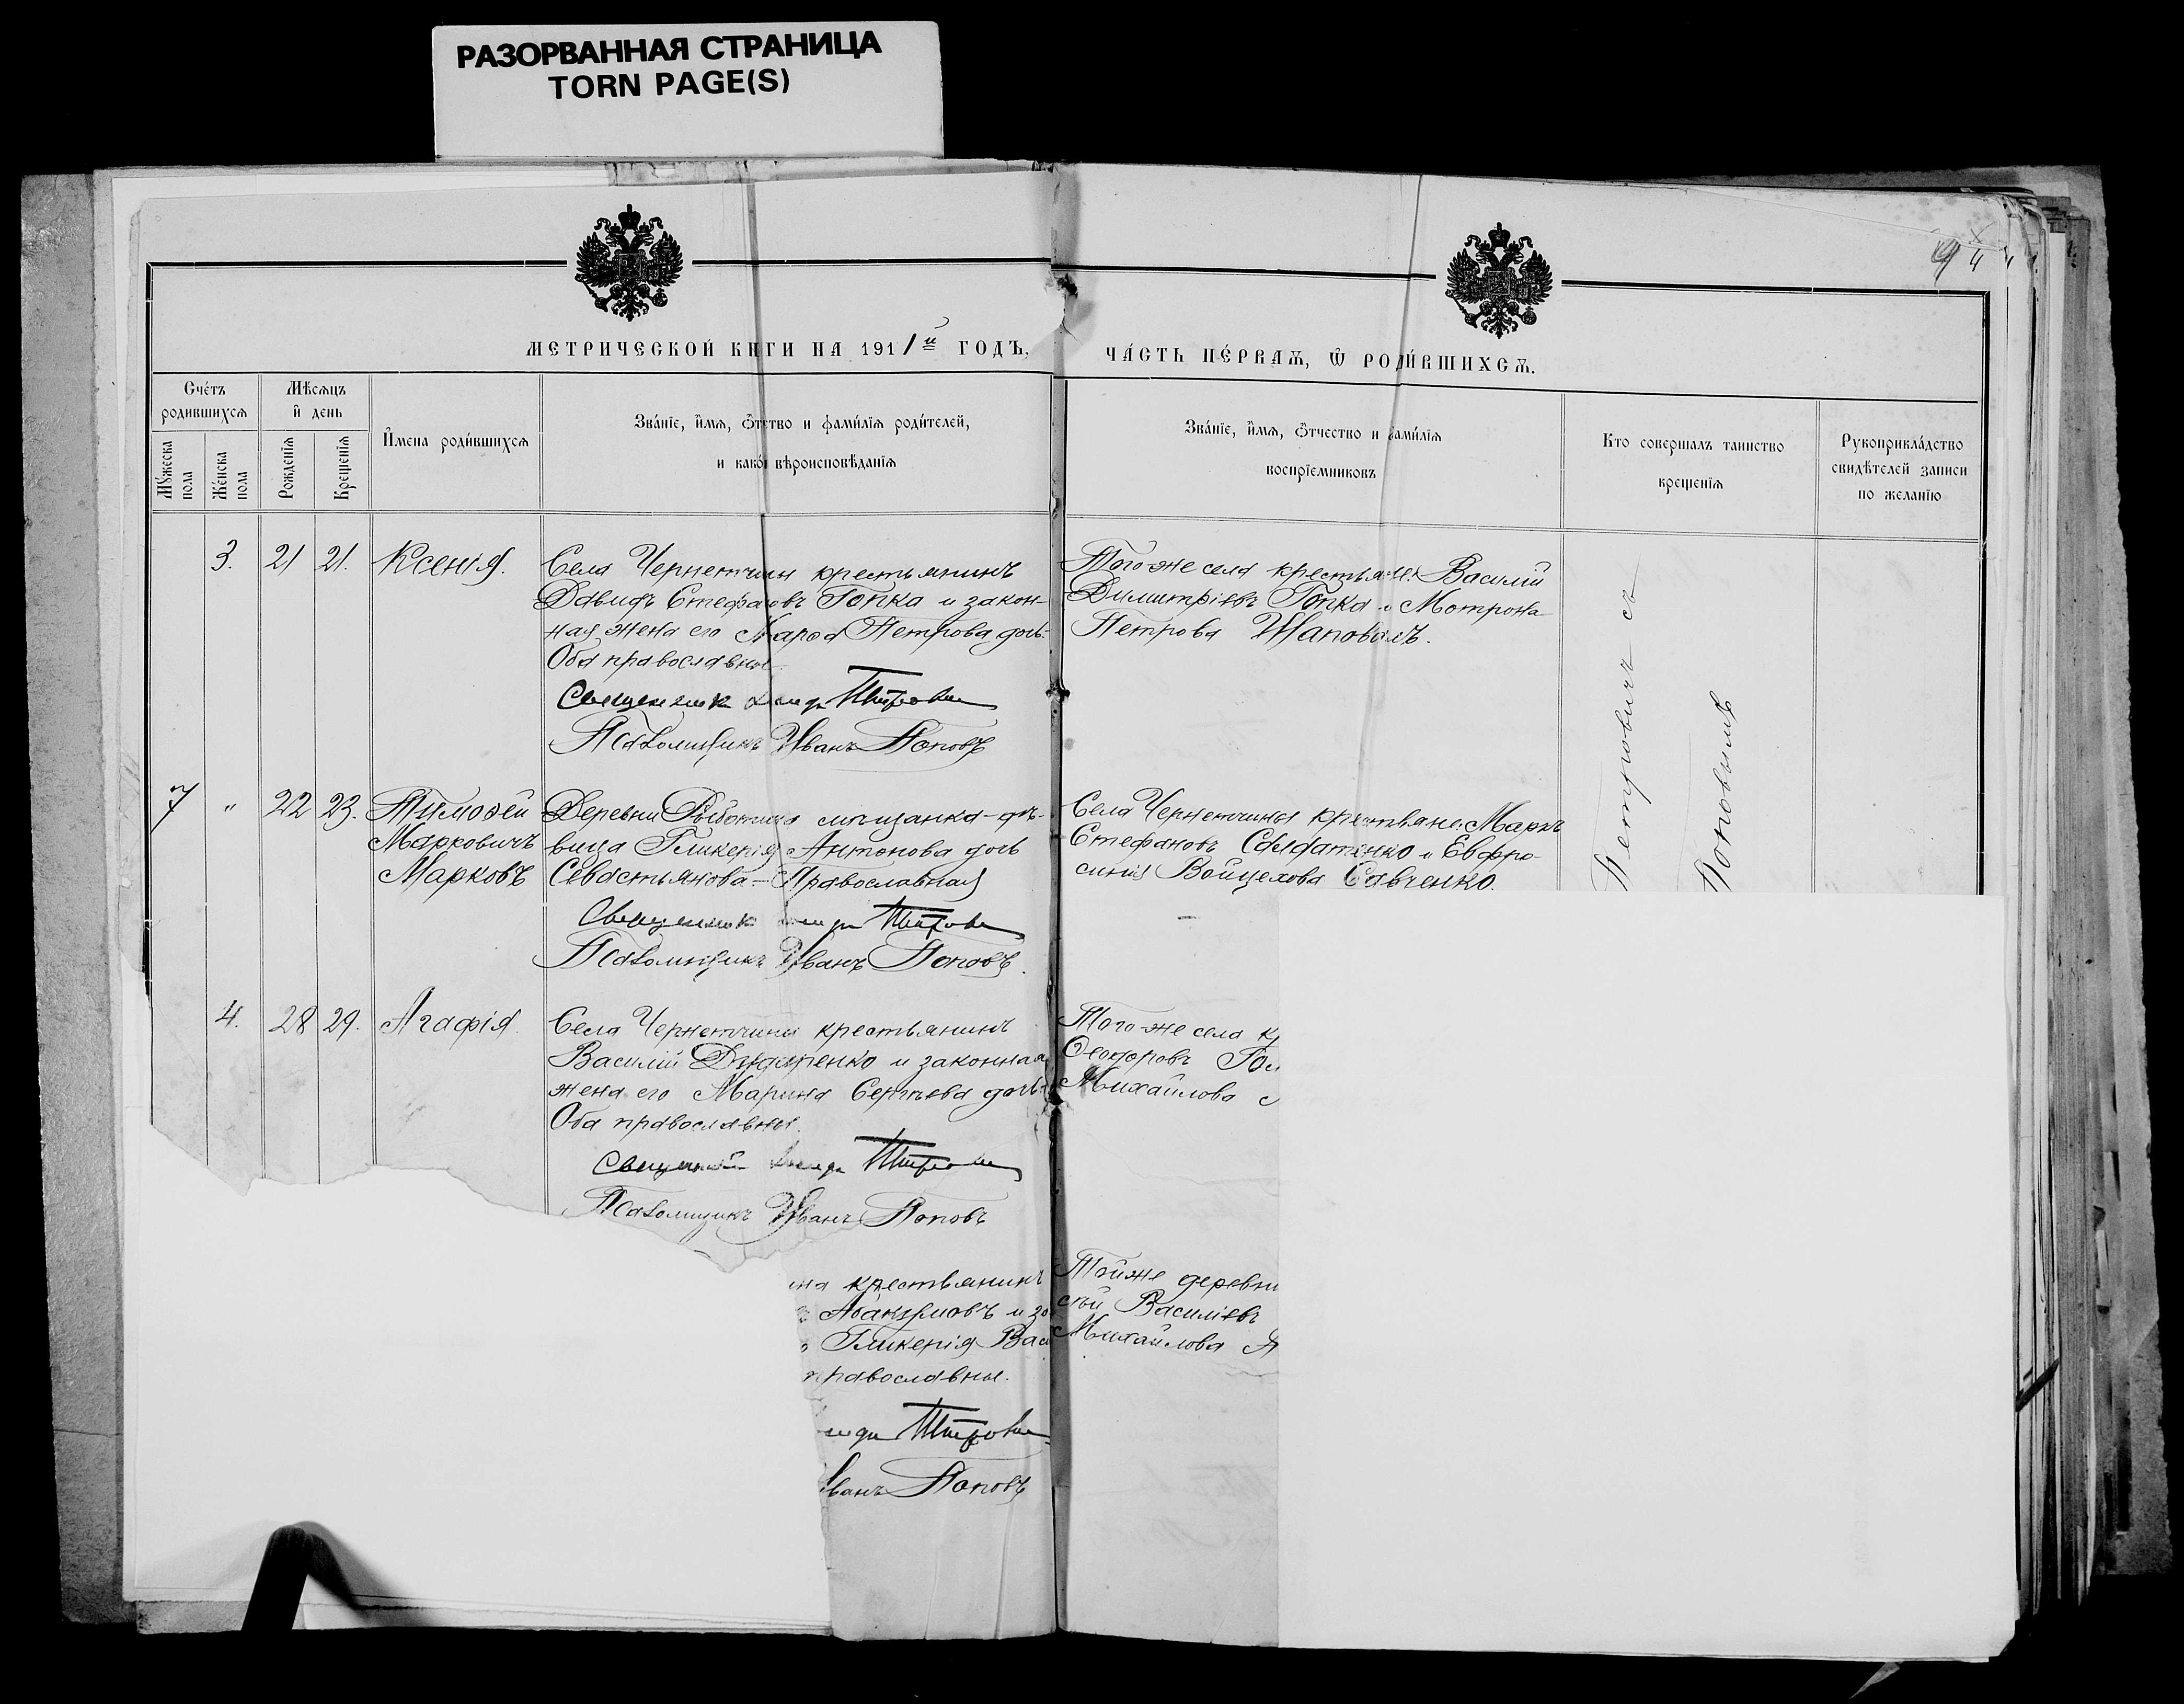 РАЗОРВАННАЯ СТРАНИЦА
TORN PAGE(S)
МЕТРИЧЕСКОЙ КНГИ НА 1911й ГОДЪ,
ЧАСТЬ ПЕРВАЯ, Ѿ РОДИВШИХСЯ.
Счетъ родившихся
Мѣсяцъ и день
Мужеска пола
Женска пола
Рожденія
Крещенія
Имена родившихся
Званіе, имя, ѿтство и фамилія родителей,
и какой вѣроисповѣданія
Званіе, имя, ѿтчество и фамилія
воспріемниковъ
Кто совершалъ таинство
крещенія
Рукоприкладство
свидѣтелей записи
по желанію
3. 21 21. Ксенія.
Села Чернетчины крестьянинъ
Давидъ Стефановъ Гопка и закон-
ная жена его Петрова дочь.
Оба православные.
Священник Петрович
Псаломщикъ Иванъ Поповъ
Того-же села крестьяне: Василій
Димитріевъ Гопка и Мотрона
Петрова Шаповалъ.
Петровичъ съ
Поповымъ
7 " 22 23. Тимофей
Марковичъ
Марковъ
Деревни мѣщанка-дѣ-
вица Гликерія Антонова дочь
Севастьянова - Православная
Священник Петрович
Псаломщикъ Иванъ Поповъ.
Села Чернетчины крестьяне: Маркъ
Стефановъ Солдатенко и Евфро-
синія Войцехова Савченко.
4. 28 29. Агафія.
Села Чернетчины крестьянинъ
Василій и законная
жена его Марина Сергѣева дочь.
Оба православны.
Священник Петрович
Псаломщикъ Иванъ Поповъ
Того-же села кр
Ѳеодоровъ
Михайлова
на крестьянинъ
Абакумовъ и за
Гликерія Вас
православны.
Петрович
Иванъ Поповъ
Тойже деревни
Василіевъ
Михайлова